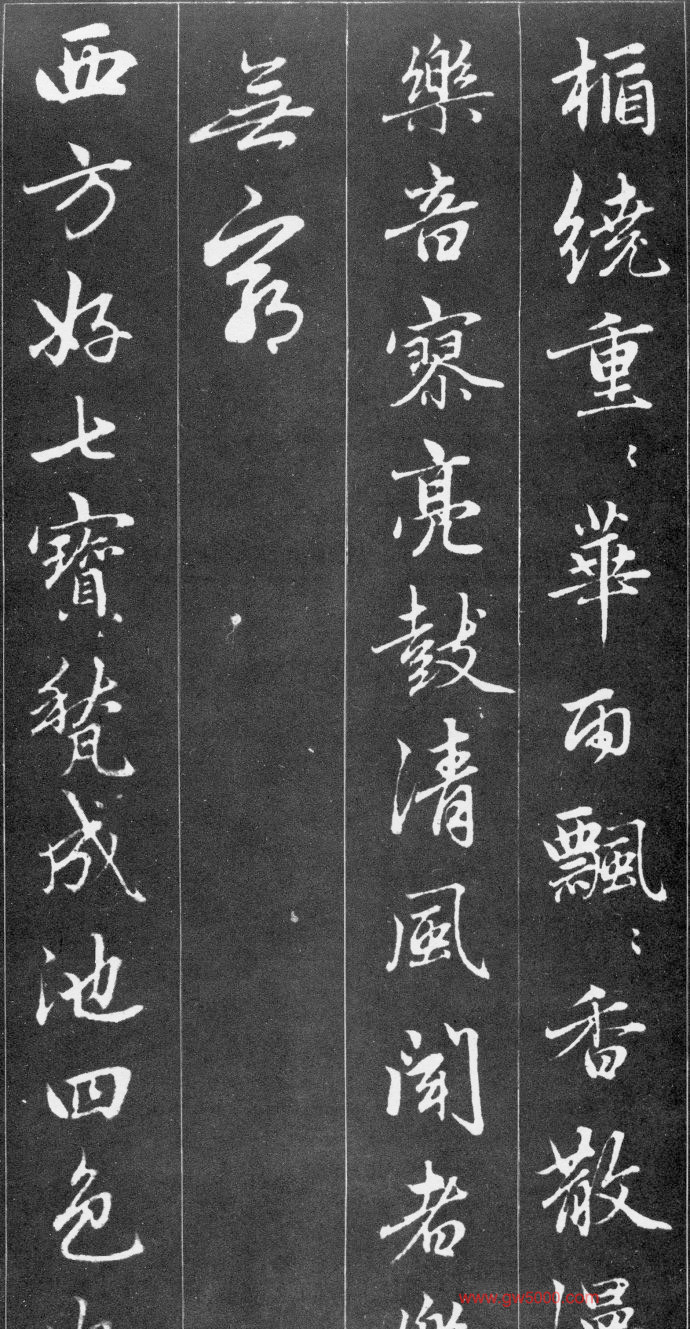 楯繞重〻華雨飄〻香散
樂音寥亮鼓清風聞者
無窮
西方好七寶甃成池四色
www.gw8000.com